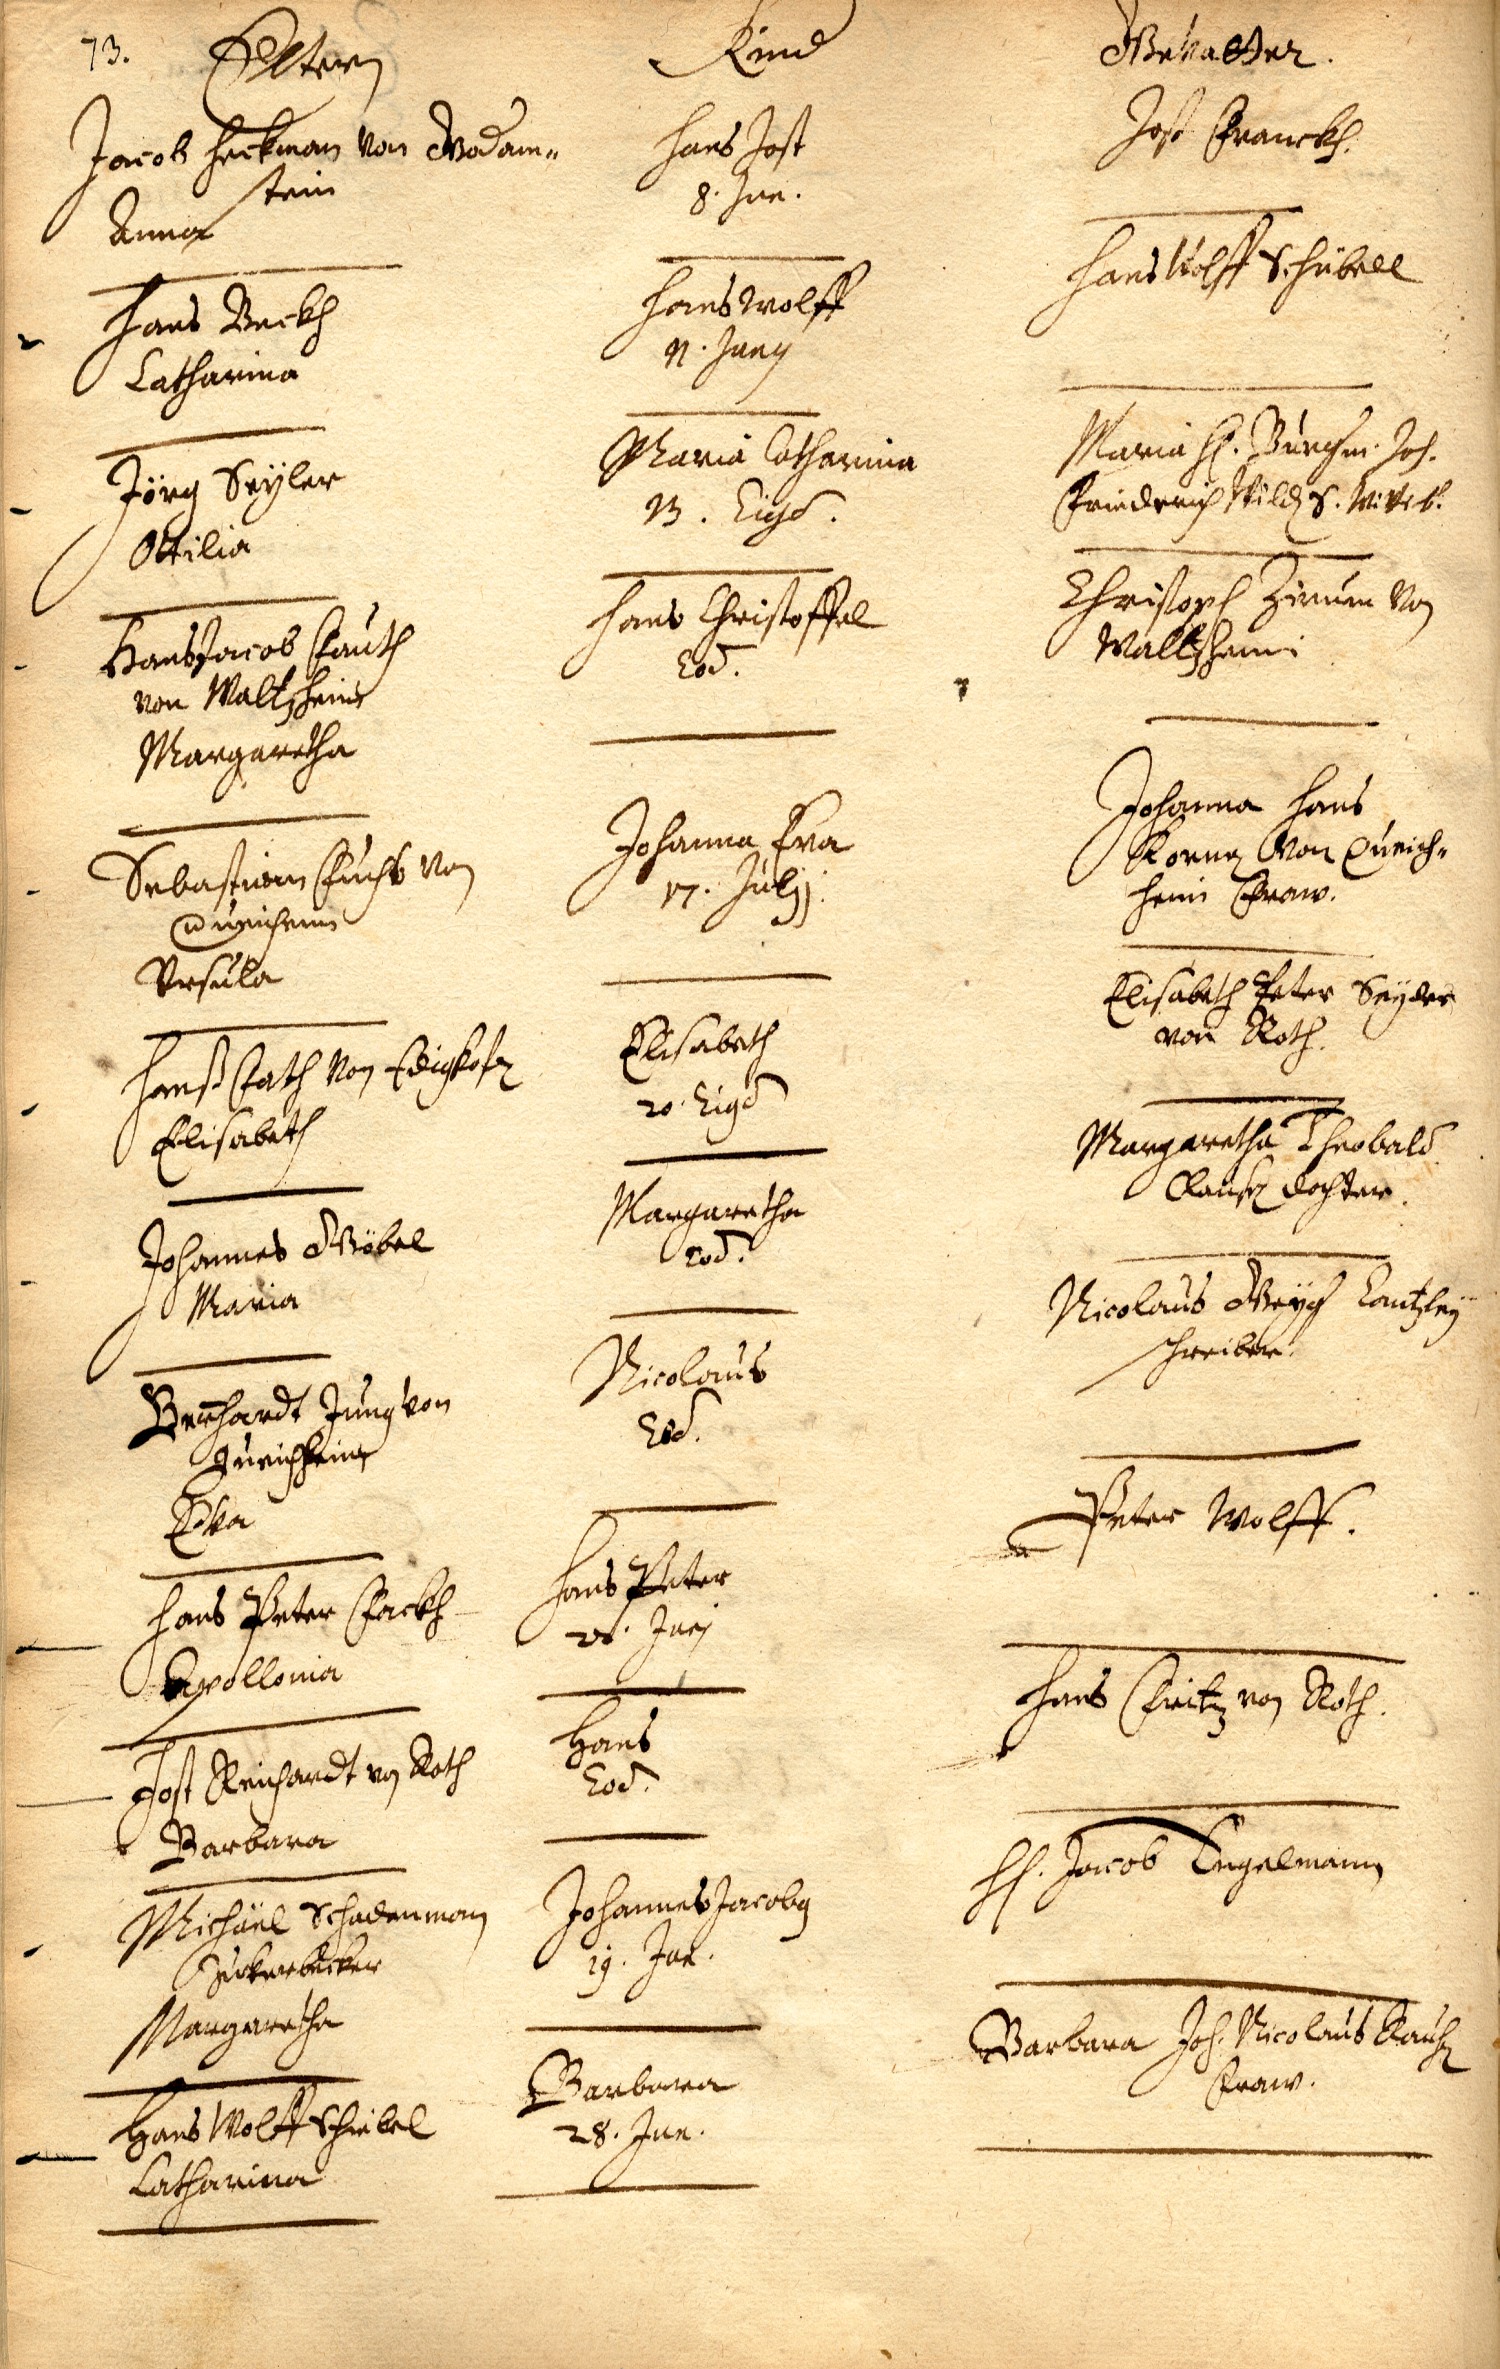 73. Eltern
Kind
Gevatter.
Jacob Heckman von Godam„
stein
Anna
Hans Jost
8. Jun.
Jost Franckh.
Hans Beckh
Catharina
Hans Wolff
11. Junij
Hans Wolff Schübell
Jörg Seyler
Ottilia
Maria Catharina
13. Eiusd.
Maria H. Burgm. Joh.
Friederich Wild S. Witt
Hans Jacob Fauth
von Waltzheim
Margaretha
Hans Christoffel
Eod.
Christoph von
Waltzheim
Sebastian Fuchs von
Ursula
Johanna Eva
17. Julij.
Johanna Hans
Korn von
heim Fraw.
Hanß Fath von
Elisabeth
Elisabeth
20. Eiusd
Elisabeth Peter Seyder
von Roth.
Johannes Göbel
Maria
Margaretha
eod.
Margaretha Theobald
dochter.
Bernhardt Jung von
Eva
Nicolaus
Eod.
Nicolaus Geyß Cantzley
schreiber.
Hans Peter Fackh
Apollonia
Hans Peter
Junij
Peter Wolff.
Jost Reichardt von Roth
Barbara
Hans
Eod.
Hans Fritz von Roth.
Michäel Schadenman
Zuckerbecker
Margaretha
Johannes Jacobus
19. Jun.
H. Jacob Engelmann
Hans Wolff Schiebel
Catharina
Barbara
28. Jun.
Barbara Joh. Nicolaus
Fraw.